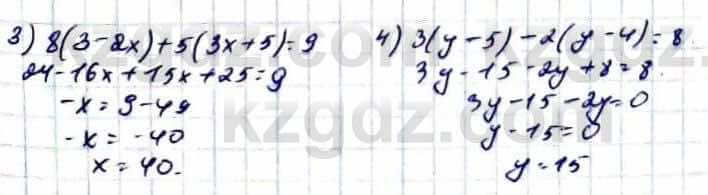 3) 8(3-2x)+5(3x+5)=9
24-16x+15x+25=9
-x=9-49
-x=-40
x=40.
4) 3(y-5)-2(y-4)=8
3y-15-2y+8=8.
3y-15-2y=0
y-15=0
y=15
kzgdz.com